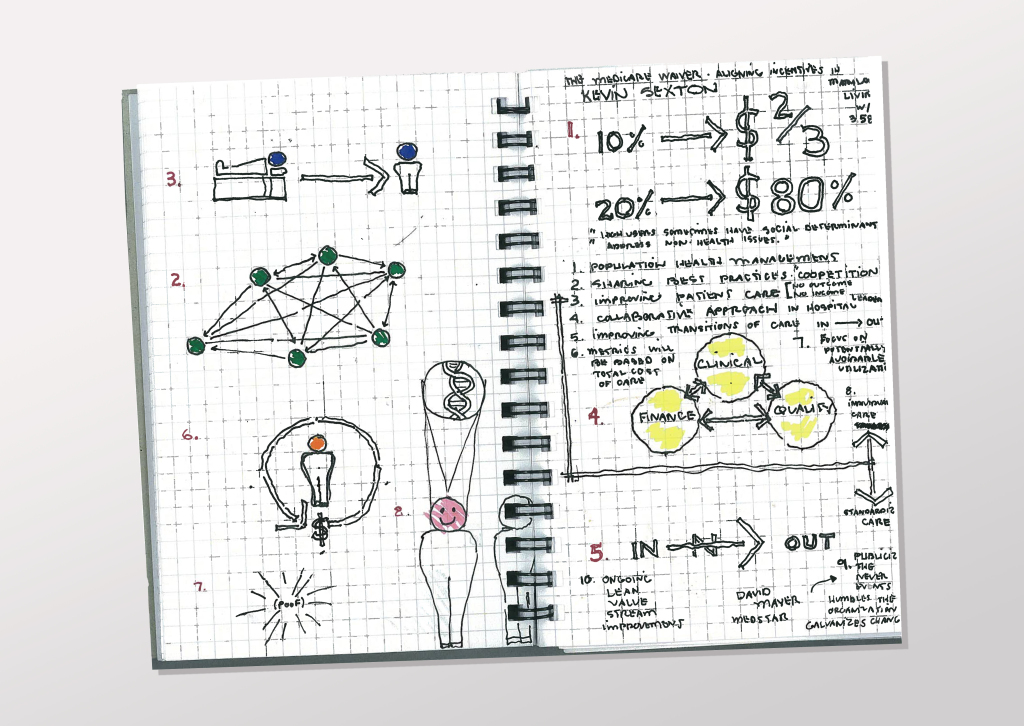 3.
2.
6.
$
7.
(POOF)
8.
THE MEDICARE WAIVER · ALIGNING INCENTIVES IN
KEVIN SEXTON
W/
1. 10% → $ 2/3
20% → $ 80%
"HIGH USERS SOMETIMES HAVE SOCIAL DETERMINANT
ADDRESS NON-HEALTH ISSUES."
1. POPULATION HEALTH MANAGEMENT
2. SHARING BEST PRACTICES. "COOPETITION
3. IMPROVING PATIENT CARE [NO OUTCOME
NO INCOME
4. COLLABORATIVE APPROACH IN HOSPITAL LEADER
5. IMPROVING TRANSITIONS OF CARE IN → OUT
6. METRICS WILL
BE BASED ON
TOTAL COST
OF CARE
7. FOCUS ON
POTENTIALLY
AVOIDABLE
UTILIZATI
CLINICAL
4. FINANCE QUALITY
8.
CARE
STANDARDIZ
CARE
5 IN → OUT
9. PUBLICIZ
THE
NEVER
EVENTS
HUMBLES THE
ORGANIZATION
GALVANIZES CHANG
10. ONGOING
LEAN
VALUE
STREAM
IMPROVEMENTS
DAVID
MAYER
MEDSTAR